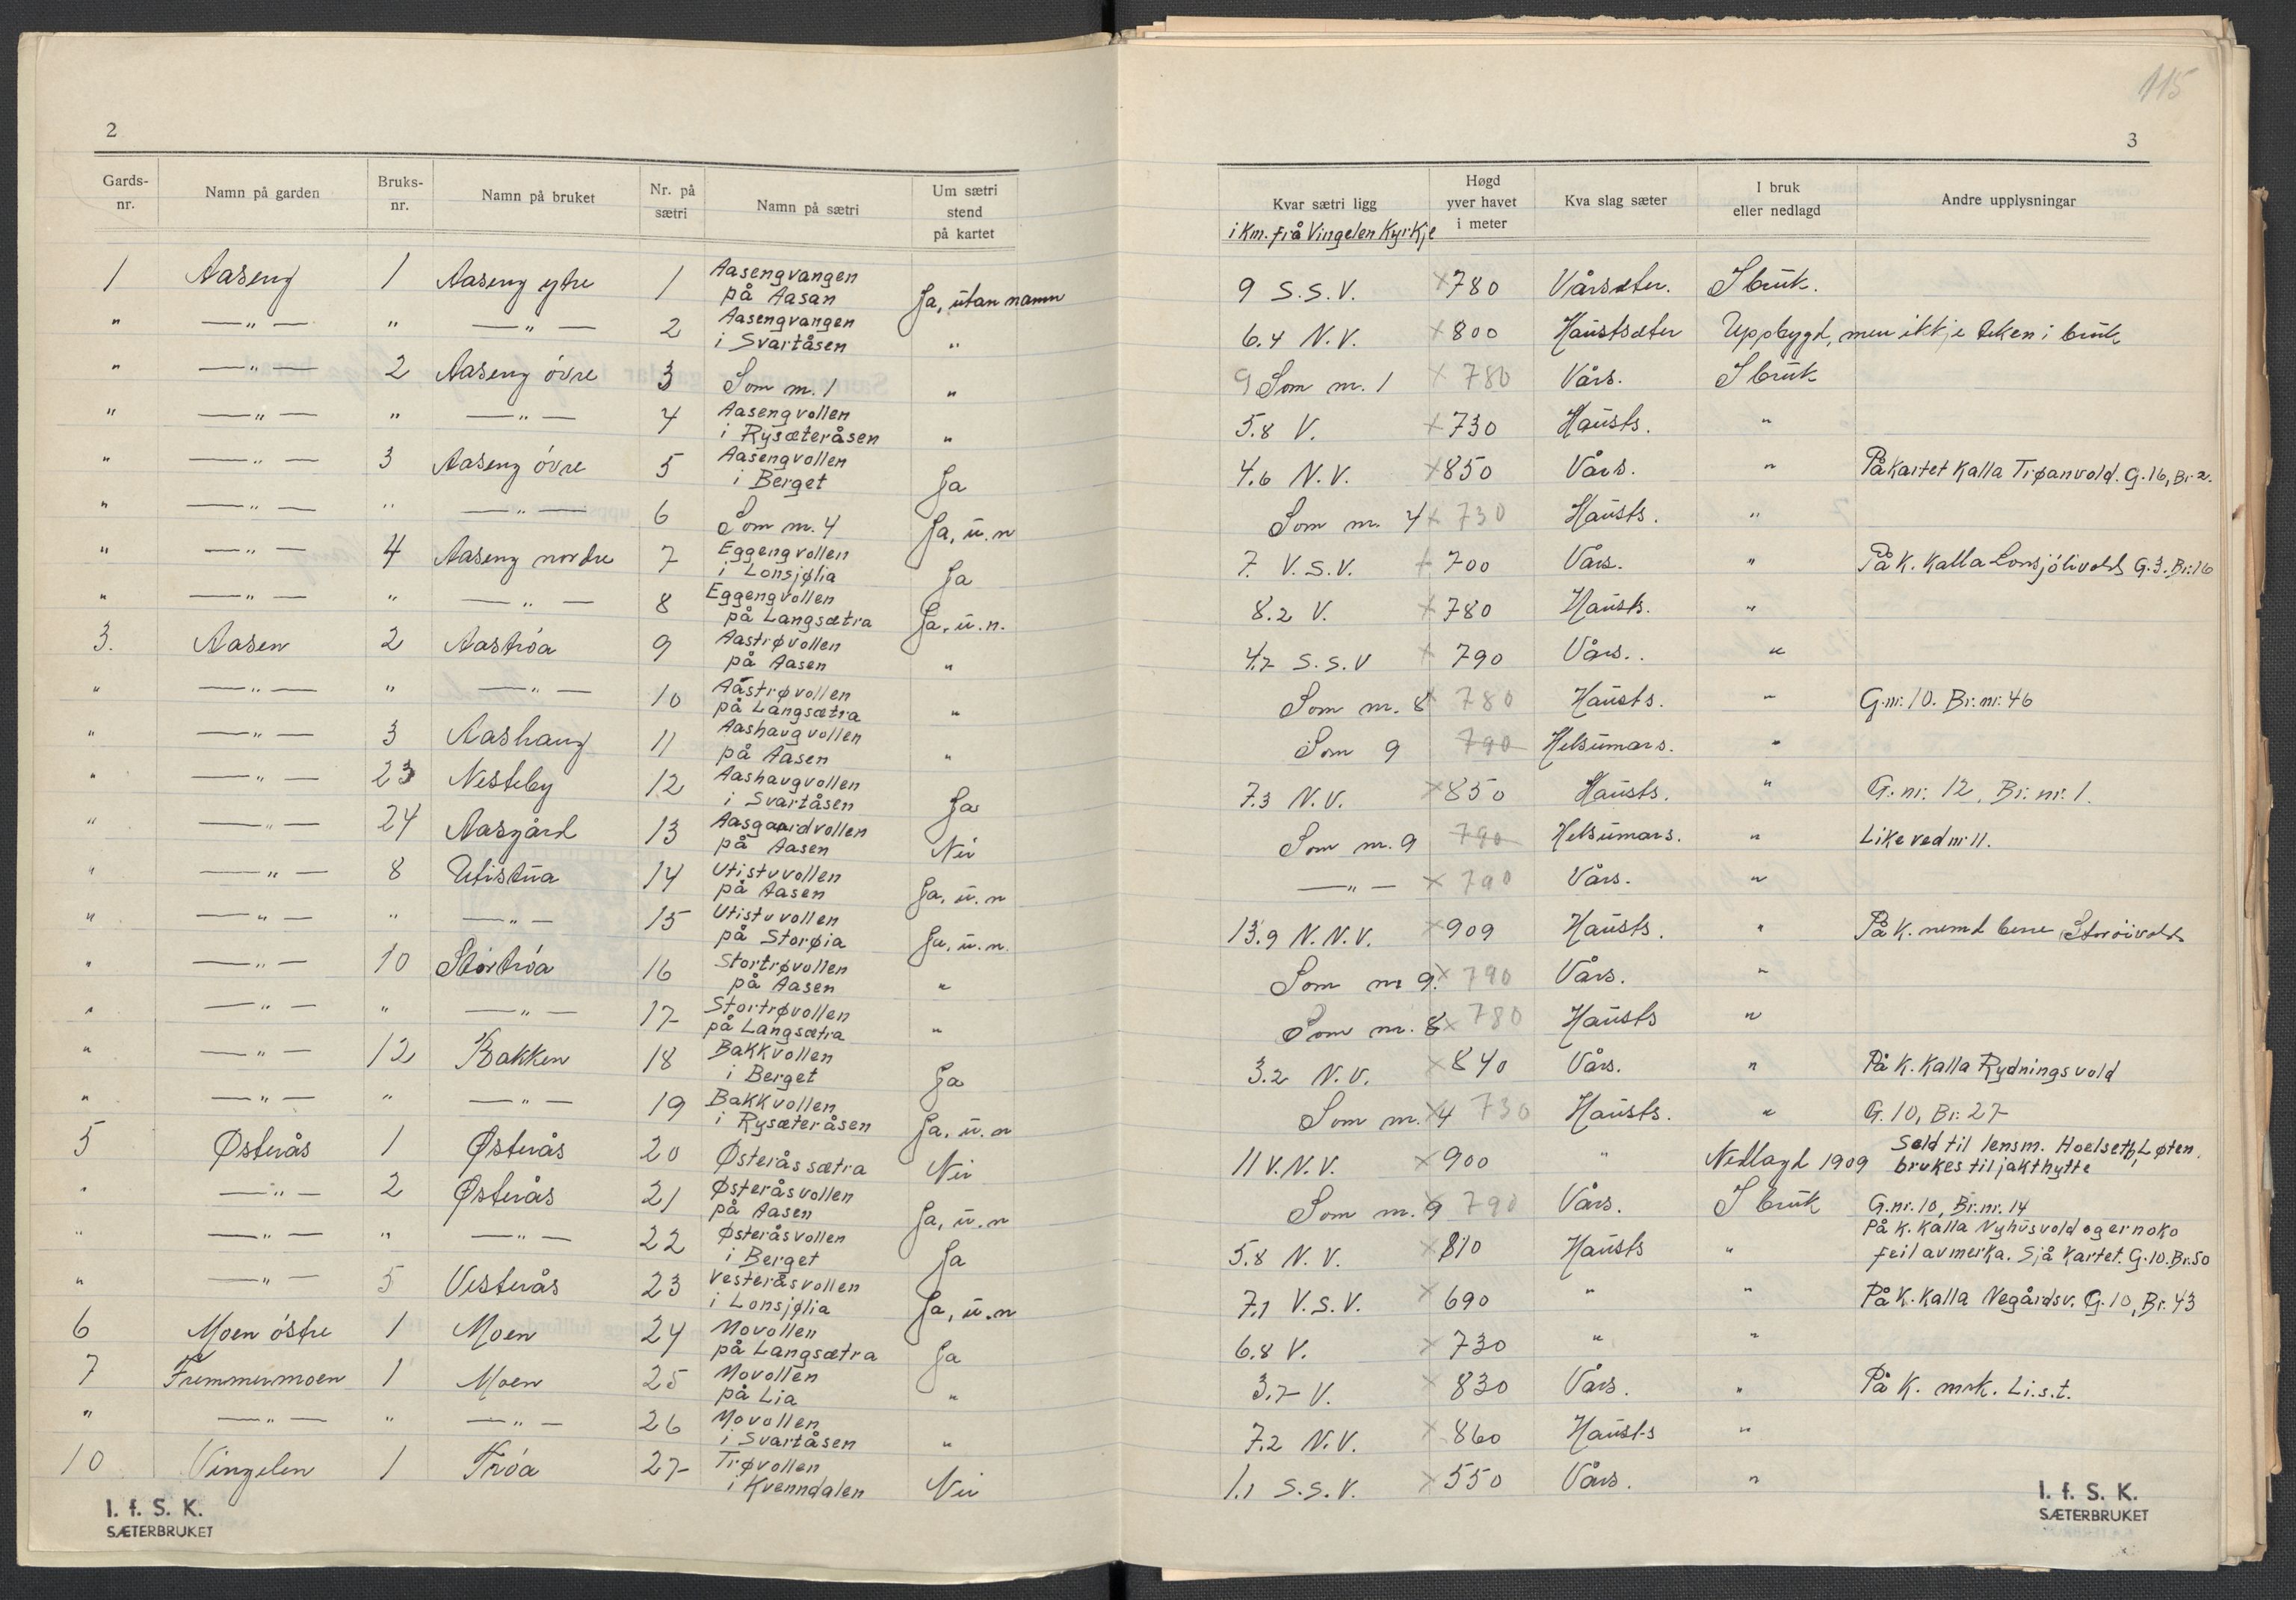 115
2
3
Gards-nr. | Namn på garden | Bruks-nr. | Namn på bruket | Nr. på sætri | Namn på sætri | Um sætri stend på kartet | Kvar sætri ligg i Km. frå Vingelen Kyrkje | Høgd yver havet i meter | Kva slag sæter | I bruk eller nedlagd | Andre upplysningar
1 | Aaseng | 1 | Aaseng ytre | 1 | Aasengvangen på Aasan | Ja, utan namn | 9 S.S.V. | x 780 | Vårsæter. | I bruk.
" | —"— | " | —"— | 2 | Aasengvangen i Svartåsen | " | 6.4 N.V. | x 800 | Haustsæter | Uppbygd, men ikkje teken i bruk
" | —"— | 2 | Aaseng óvre | 3 | Som nr. 1 | " | 9 Som nr. 1 | x 780 | Vårs. | I bruk
" | —"— | " | —"— | 4 | Aasengvollen i Rysæteråsen | " | 5.8 V. | x 730 | Hausts. | "
" | —"— | 3 | Aaseng óvre | 5 | Aasengvollen i Berget | Ja | 4.6 N.V. | x 850 | Vårs. | " | På kartet Kalla Trøanvold. G.16, Br. 2.
" | —"— | " | —"— | 6 | Som nr. 4 | Ja, u.n | Som nr. 4 | x 730 | Hausts. | "
" | —"— | 4 | Aaseng nordre | 7 | Eggengvollen i Lonsjølia | Ja | 7. V.S.V. | x 700 | Vårs. | " | På K. Kalla Lonsjólivold G.3. Br.16
" | —"— | " | —"— | 8 | Eggengvollen på Langsætra | Ja, u.n. | 8.2 V. | x 780 | Hausts. | "
3. | Aasen | 2 | Aastróa | 9 | Aastrøvollen på Aasen | " | 4.7 S.S.V | x 790 | Vårs.. | "
" | —"— | " | —"— | 10 | Aastrøvollen på Langsætra | " | Som nr. 8 | x 780 | Hausts. | " | G.nr. 10. Br. nr. 46
" | —"— | 3 | Aashaug | 11 | Aashaugvollen på Aasen | " | Som 9 | 790 | Helsumars. | "
" | —"— | 23 | Nesteby | 12 | Aashaugvollen i Svartåsen | Ja | 7.3 N.V. | x 850 | Hausts. | " | G. nr. 12, Br. nr. 1.
" | —"— | 24 | Aasgård | 13 | Aasgaardvollen på Aasen | Nei | Som nr. 9 | 790 | Helsumars. | " | Like ved nr 11.
" | —"— | 8 | Utistua | 14 | Utistuvollen på Aasen | Ja, u.n | —"— | x 790 | Vårs. | "
" | —"— | " | —"— | 15 | Utistuvollen på Storøia | Ja, u.n. | 13.9 N.N.V. | x 909 | Hausts. | " | På K. nemd berre Storóivold
" | —"— | 10 | Stortróa | 16 | Stortrøvollen på Aasen | " | Som nr 9. | x 790 | Vårs. | "
" | —"— | " | —"— | 17 | Stortrøvollen på Langsætra | " | Som nr. 8 | x 780 | Hausts | "
" | —"— | 12 | Bakken | 18 | Bakkvollen i Berget | Ja | 3.2 N.V. | x 840 | Vårs. | " | På K. Kalla Rydningsvold
" | —"— | " | —"— | 19 | Bakkvollen i Rysæteråsen | Ja, u.n | Som nr. 4 | x 730 | Hausts. | " | G. 10, Br. 27
5 | Østerås | 1 | Østerås | 20 | Østeråssætra | Nei | 11 V.N.V. | x 900 | " | Nedlagd 1909 | Seld til lensm. Hoelseth, Løten, brukes til jakthytte
" | —"— | 2 | Østerås | 21 | Østeråsvollen på Aasen | Ja, u.n | Som nr. 9 | x 790 | Vårs. | I bruk | G.nr. 10, Br. nr. 14
" | —"— | " | —"— | 22 | Østeråsvollen i Berget | Ja | 5.8 N.V. | x 810 | Hausts | " | På K. Kalla Nyhusvold og er noko feil avmerka. Sjå Kartet. G.10. Br.50
" | —"— | 5 | Vesterås | 23 | Vesteråsvollen i Lonsjølia | Ja, u.n | 7.1 V.S.V. | x 690 | " | " | På K. Kalla Negårdsv. G.10, Br. 43
6 | Moen óstre | 1 | Moen | 24 | Movollen på Langsætra | Ja | 6.8 V. | x 730 | " | "
7 | Fremmermoen | 1 | Moen | 25 | Movollen på Lia | " | 3.7 V. | x 830 | Vårs. | " | På K. mrk. Li.s.t.
" | —"— | " | —"— | 26 | Movollen i Svartåsen | " | 7.2 N.V. | x 860 | Hausts | "
10 | Vingelen | 1 | Tróa | 27 | Trøvollen i Kvenndalen | Nei | 1.1 S.S.V. | x 550 | Vårs. | "
I. f. S. K.
SÆTERBRUKET
I. f. S. K.
SÆTERBRUKET